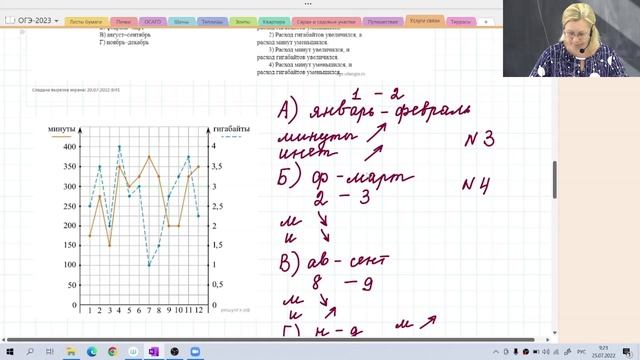 ОГЭ-2023
Листы бумаги
Печки
ОСАГО
Шины
Теплицы
Зонты
Квартира
Сараи и садовые участки
Путешествия
Услуги связи
Террасы
В) август-сентябрь
Г) ноябрь-декабрь
2) Расход гигабайтов увеличился, а
расход минут уменьшился.
3) Расход минут увеличился, и
расход гигабайтов увеличился.
4) Расход минут уменьшился, и
расход гигабайтов уменьшился.
Создана вырезка экрана: 20.07.2022 8:41
минуты
гигабайты
400 4
350 3,5
300 3
250 2,5
200 2
150 1,5
100 1
50 0,5
0 0
1 2 3 4 5 6 7 8 9 10 11 12
1 - 2
А) январь - февраль
минуты ↗
инет ↗
N 3
Б) ф - март
2 - 3
N 4
м ↘
и ↘
В) ав - сент
8 - 9
м ↘
и ↗
Г) н - д м ↗
РУС
9:21
25.07.2022